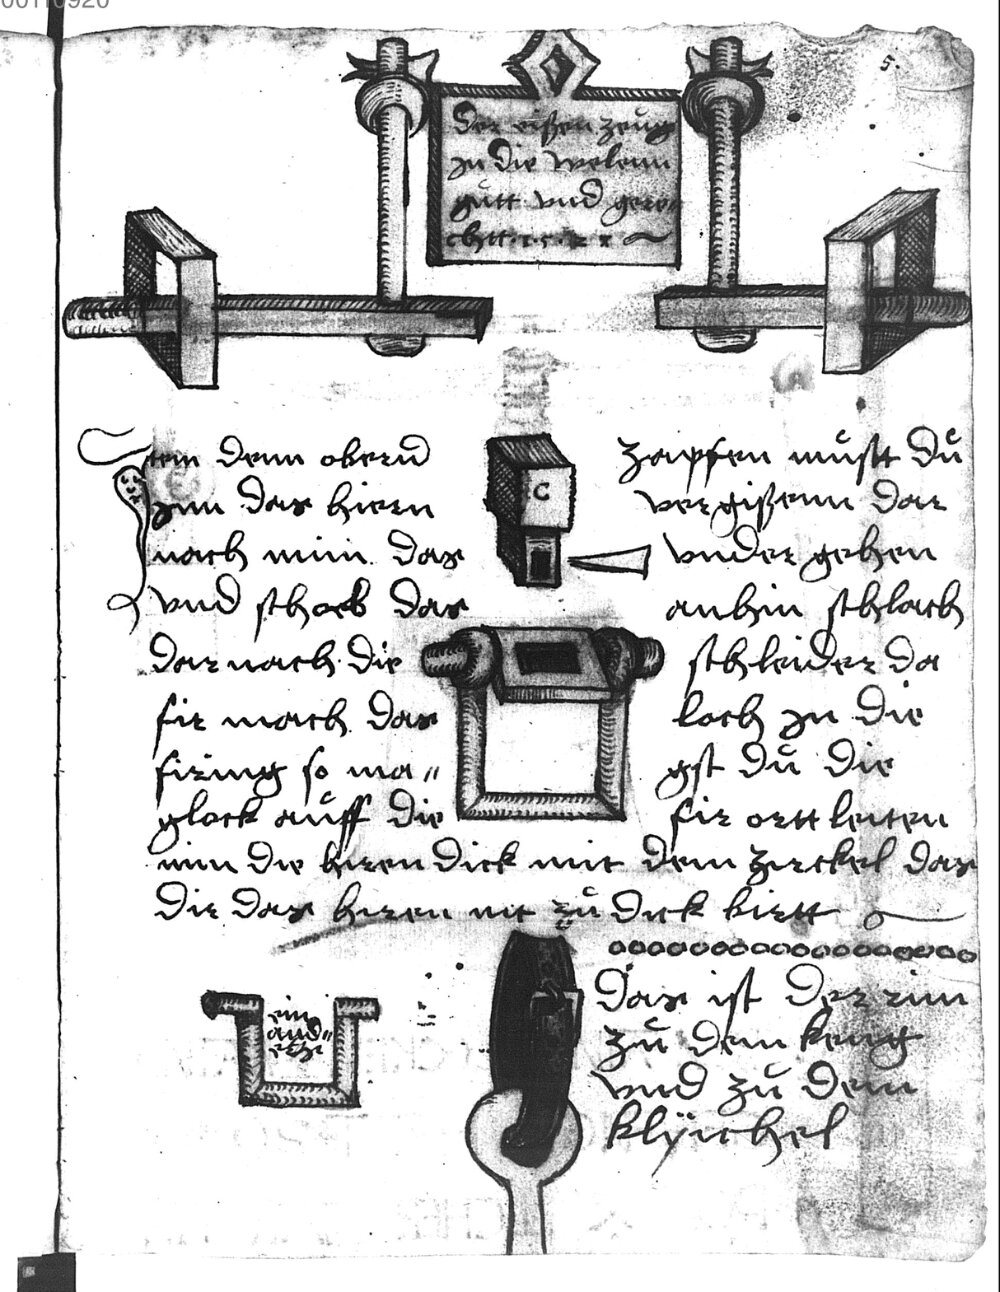 00110920
5.
Der eißen zeug
zu die welenn
gutt vnd gere〃
chtt
Item denn obern zapfen mustt du
jnn das hiern vergißenn dar
nach nim das vnder gehen
vnd schoeb das anhin schlach
darnach die schleider da
fir mach das loch zu die
firing so ma〃 gst du die
glock auff die fir ortt leiten
nim die hiren dick mit dem zirckel das
dir das hiren nit zu dick birtt
C
ein
and〃
Das ist der rim
zu dem keng
vnd zu dem
klÿchel